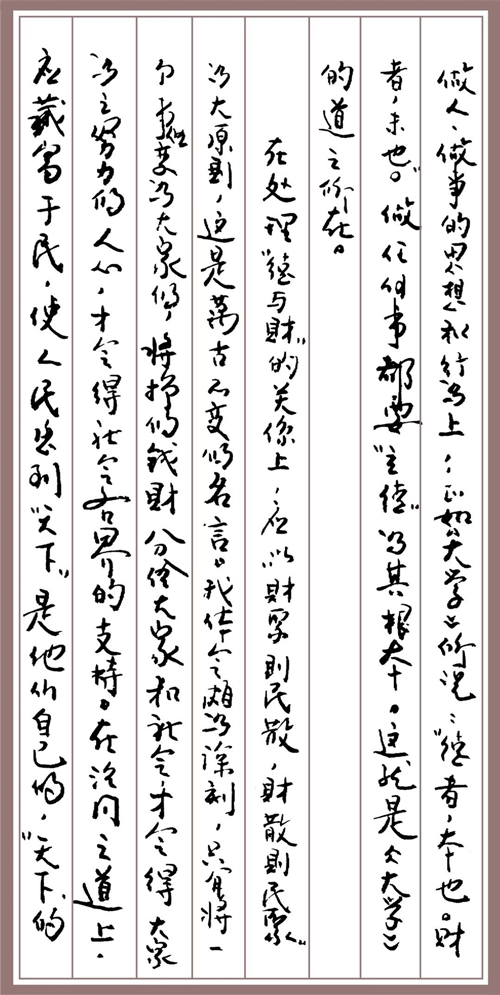 做人、做事的思想和行为上，正如《大学》所说：“德者，本也。財
者，末也。”做任何事都要“立德”为其根本。这就是《大学》
的道之所在。
在处理“德与財”的关係上，应以財聚则民散，財散则民聚”
为大原则，这是萬古不变的名言。我体会颇为深刻，只有将一
个事业变为大家的，将挣的钱財分给大家和社会，才会得大家
为之努力的人心，才会得社会各界的支持。在治国之道上，
应藏富于民，使人民感到“天下”是他们自己的，“天下”的